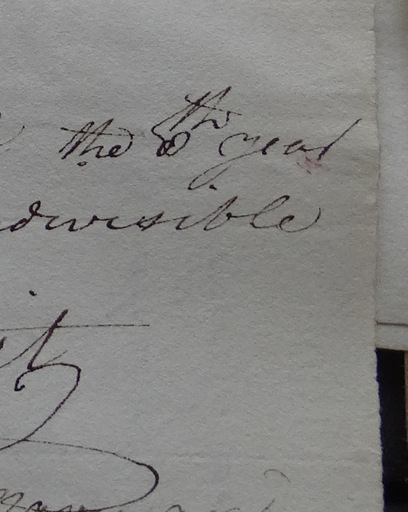 the 8th year
ndivisible
it